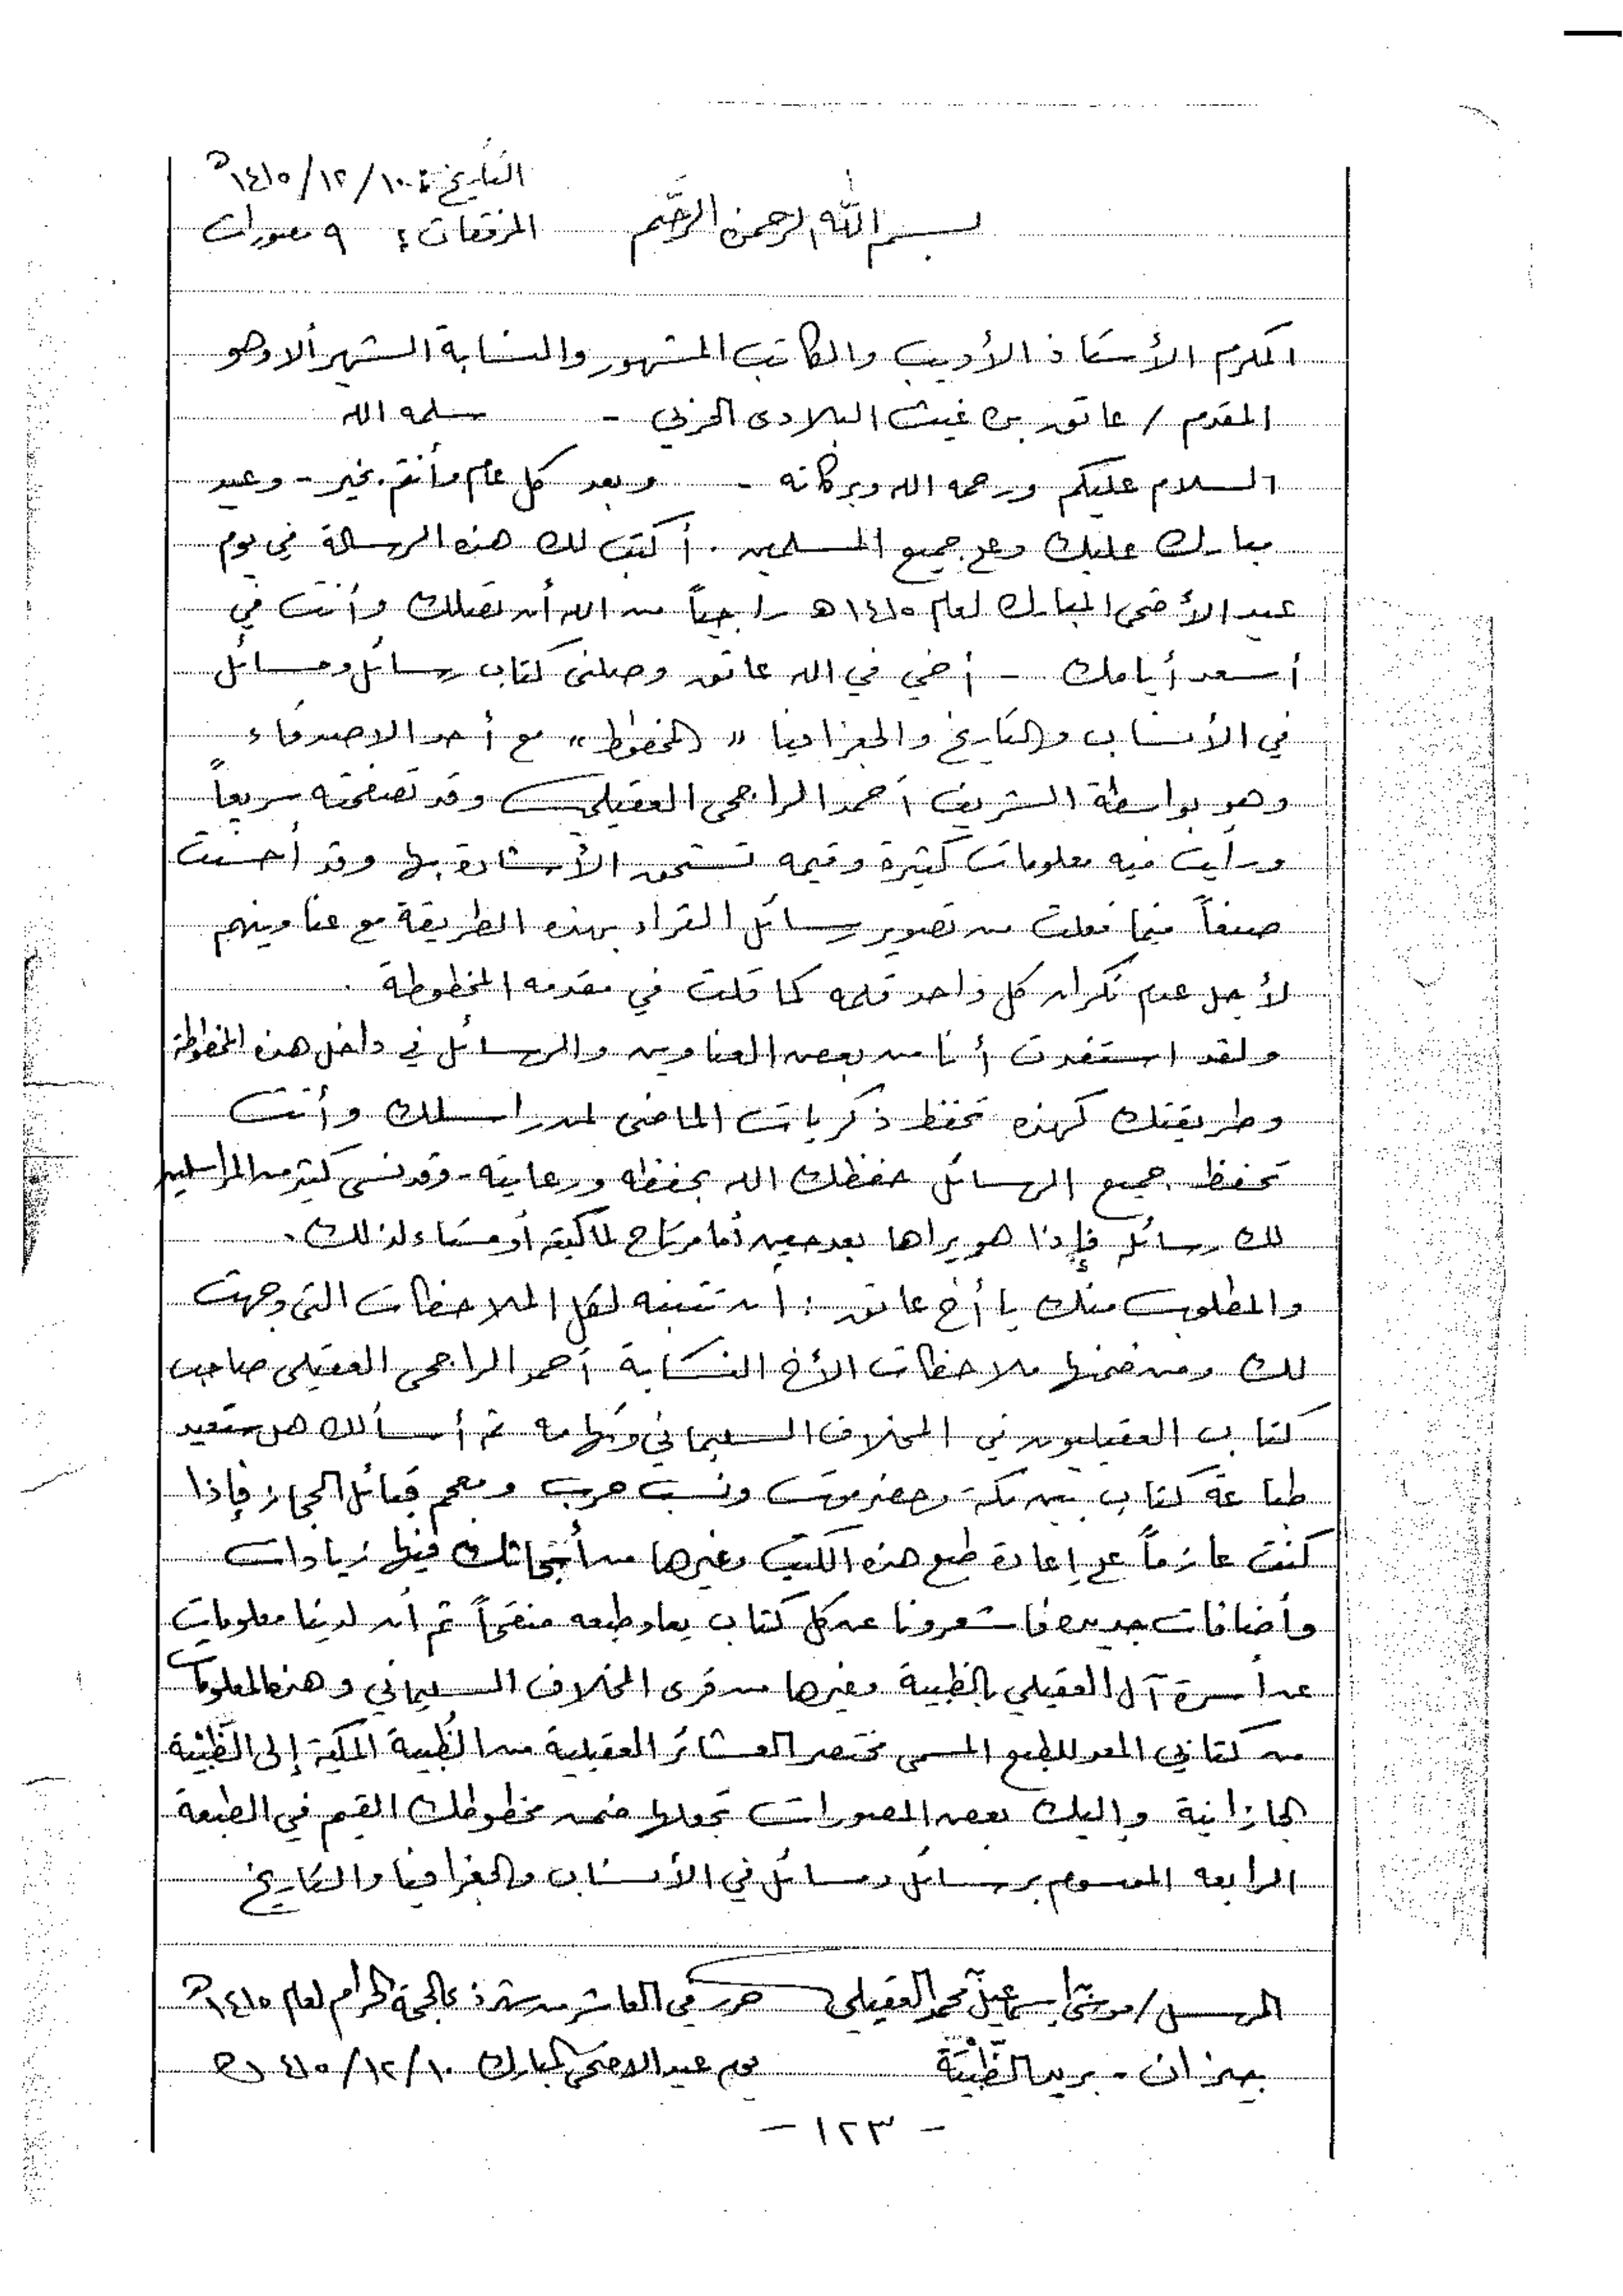 التاريخ: ١٠/١٢/١٤١٥هـ
بسم الله الرحمن الرحيم المرفقات: ٩ مصورات
المكرم الأستاذ الأديب والكاتب المشهور والنسابة الشهير ألا وهو
المقدم / عاتق بن غيث البلادى الحربي - سلمه الله
السلام عليكم ورحمه الله وبركاته - وبعد كل عام وأنتم بخير - وعيد
مبارك عليك وعلى جميع المسلمين . أكتب لك هذه الرسالة في يوم
عيد الأضحى المبارك لعام ١٤١٥هـ راجياً من الله أن تصلك وأنت في
أسعد أيامك - أخي في الله عاتق وصلنى كتاب رسائل ومسائل
في الأنساب والتاريخ والجغرافيا " المخطوط " مع أحد الاصدقاء
وهو بواسطة الشريف أحمد الراجحى العقيلي وقد تصفحته سريعاً
ورأيت فيه معلومات كثيرة وقيمه تستحق الأشادة بها وقد أحسنت
صنعاً فيما فعلت من تصوير رسائل القراء بهذه الطريقة مع عناوينهم
لأجل عدم نكران كل واحد قلمه كما قلت في مقدمه المخطوطة .
ولقد استفدت أنا من بعض العناوين والرسائل في داخل هذه المخطوطة
وطريقتك كهذه تحفظ ذكريات الماضى لمن راسلك وأنت
تحفظ جميع الرسائل حفظك الله بحفظه ورعايته - وقد نسى كثير من المراسلين
لك رسائله فإذا هو يراها بعد حين أما مرتاح لما كتبه أو مستاء لذلك .
والمطلوب منك يا أخ عاتق : ان تتنبه لكل الملاحظات التى وجهت
لك ومن ضمنها ملاحظات الأخ النسابة أحمد الراجحى العقيلى صاحب
كتاب العقيليون في المخلاف السليماني وتهامه ثم أسألك هل ستعيد
طباعة كتاب بين مكة وحضرموت ونسب حرب ومعجم قبائل الحجاز فإذا
كنت عازماً على إعادة طبع هذه الكتب وغيرها من أبحاثك فيها زيادات
وأضافات جديده فاشعرونا عن كل كتاب يعاد طبعه منقحاً ثم أن لدينا معلومات
عن أسرة آل العقيلي بالظبية وغيرها من قرى المخلاف السليماني وهذه المعلومات
من كتابي المعد للطبع المسمى مختصر العشائر العقيلية من الظُبية المكية إلى الظَّبْيَة
الجازانية وإليك بعض المصورات تجعلها ضمن مخطوطك القيم في الطبعة
الرابعه الموسوم برسائل ومسائل في الأنساب والجغرافيا والتاريخ
المرسل / موسى اسماعيل محمد العقيلي حرر في العاشر من شهر ذي الحجة الحرام لعام ١٤١٥هـ
جيزان - بريد الظَّبْيَة يوم عيد الاضحى المبارك ١٠/١٢/١٤١٥هـ
- ١٢٣ -